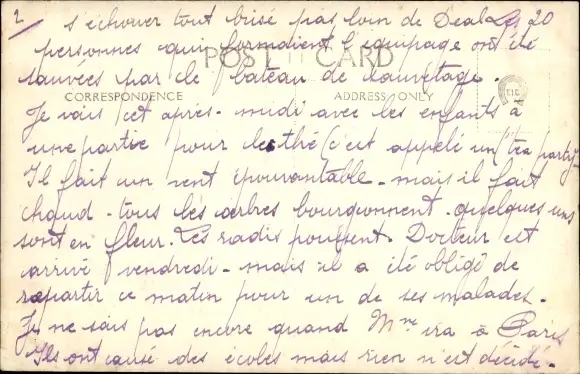 2/ s'échouer tout brisé pas loin de Deal. Les 20
personnes qui formdient l'équipage ont été
POST CARD
sauvées par le bateau de sauvetage.
CORRESPONDENCE
ADDRESS ONLY
Je vais cet après-midi avec les enfants à
une partie pour le thé (c'est appelé un tea party)
Il fait un vent épouvantable - mais il fait
chaud - tous les arbres bourgonnent - quelques uns
sont en fleur. Les radis poussent. Docteur est
arrivé vendredi - mais il a été obligé de
repartir ce matin pour un de ses malades.
Je ne sais pas encore quand Mme ira à Paris
Ils ont causé des écoles mais rien n'est décidé.